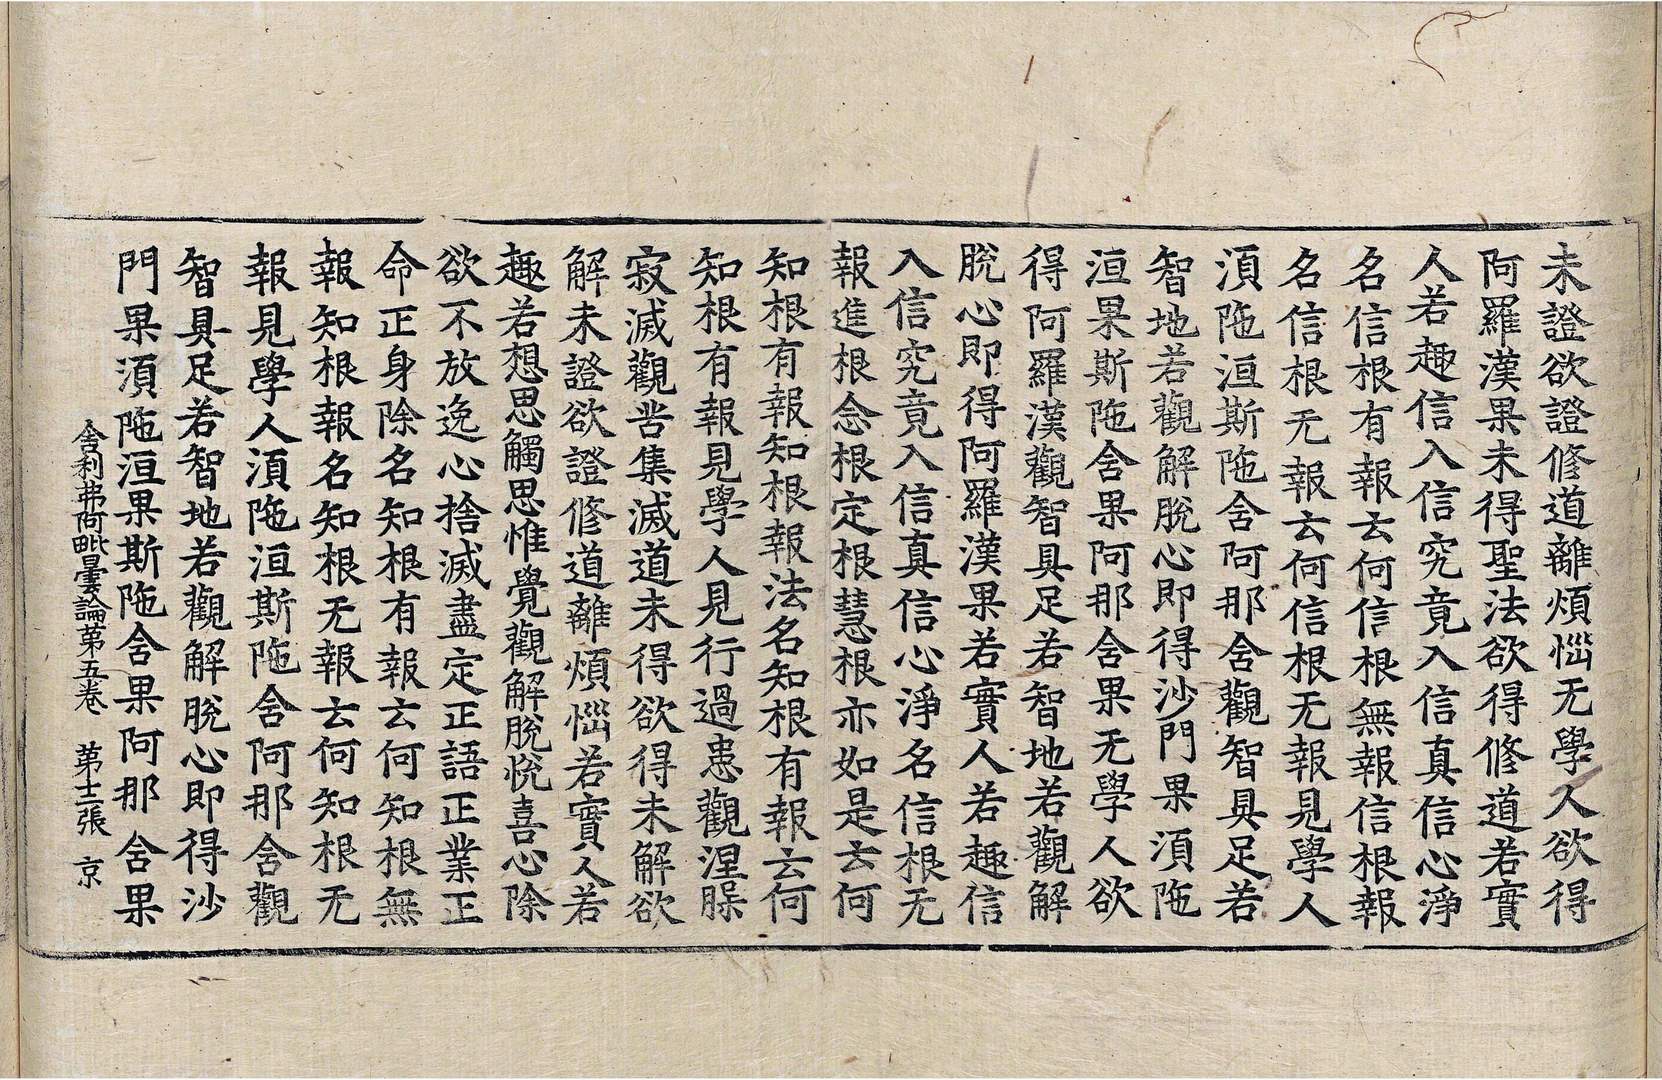 未證欲證修道離煩惱无學人欲得
阿羅漢果未得聖法欲得修道若實
人若趣信入信究竟入信真信心淨
名信根有報云何信根無報信根報
名信根无報云何信根无報見學人
湏陁洹斯陁含阿那含觀智具足若
智地若觀解脫心即得沙門果湏陁
洹果斯陁含果阿那含果无學人欲
得阿羅漢觀智具足若智地若觀解
脫心即得阿羅漢果若實人若趣信
入信究竟入信真信心淨名信根无
報進根念根定根慧根亦如是云何
知根有報知根報法名知根有報云何
知根有報見學人見行過患觀涅槃
寂滅觀苦集滅道未得欲得未解欲
解未證欲證修道離煩惱若實人若
趣若想思觸思惟覺觀解脫悅喜心除
欲不放逸心捨滅盡定正語正業正
命正身除名知根有報云何知根無
報知根報名知根无報云何知根无
報見學人湏陁洹斯陁含阿那含觀
智具足若智地若觀解脫心即得沙
門果湏陁洹果斯陁含果阿那含果
舍利弗阿毗曇論第五卷　第十二張　京